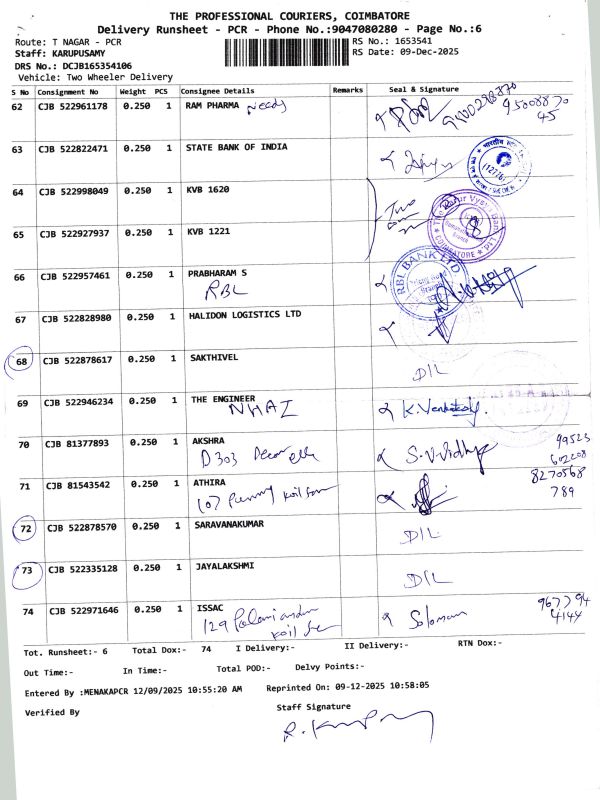 THE PROFESSIONAL COURIERS, COIMBATORE
Delivery Runsheet - PCR - Phone No.:9047080280 - Page No.:6
Route: T NAGAR - PCR RS No.: 1653541
Staff: KARUPUSAMY RS Date: 09-Dec-2025
DRS No.: DCJB165354106
Vehicle: Two Wheeler Delivery
S No Consignment No Weight PCS Consignee Details Remarks Seal & Signature
62 CJB 522961178 0.250 1 RAM PHARMA
63 CJB 522822471 0.250 1 STATE BANK OF INDIA
64 CJB 522998049 0.250 1 KVB 1620
65 CJB 522927937 0.250 1 KVB 1221
COIMBATORE
66 CJB 522957461 0.250 1 PRABHARAM S
RBL RBL BANK LTD
67 CJB 522828980 0.250 1 HALIDON LOGISTICS LTD
68 CJB 522878617 0.250 1 SAKTHIVEL
D/L
69 CJB 522946234 0.250 1 THE ENGINEER
NHAI
70 CJB 81377893 0.250 1 AKSHRA
D303 S.V.Vidhya
71 CJB 81543542 0.250 1 ATHIRA 8270568
107 789
72 CJB 522878570 0.250 1 SARAVANAKUMAR
D/L
73 CJB 522335128 0.250 1 JAYALAKSHMI
D/L
74 CJB 522971646 0.250 1 ISSAC Solomon 967794
129 4144
Tot. Runsheet:- 6 Total Dox:- 74 I Delivery:- II Delivery:- RTN Dox:-
Out Time:- In Time:- Total POD:- Delvy Points:-
Entered By :MENAKAPCR 12/09/2025 10:55:20 AM Reprinted On: 09-12-2025 10:58:05
Verified By Staff Signature